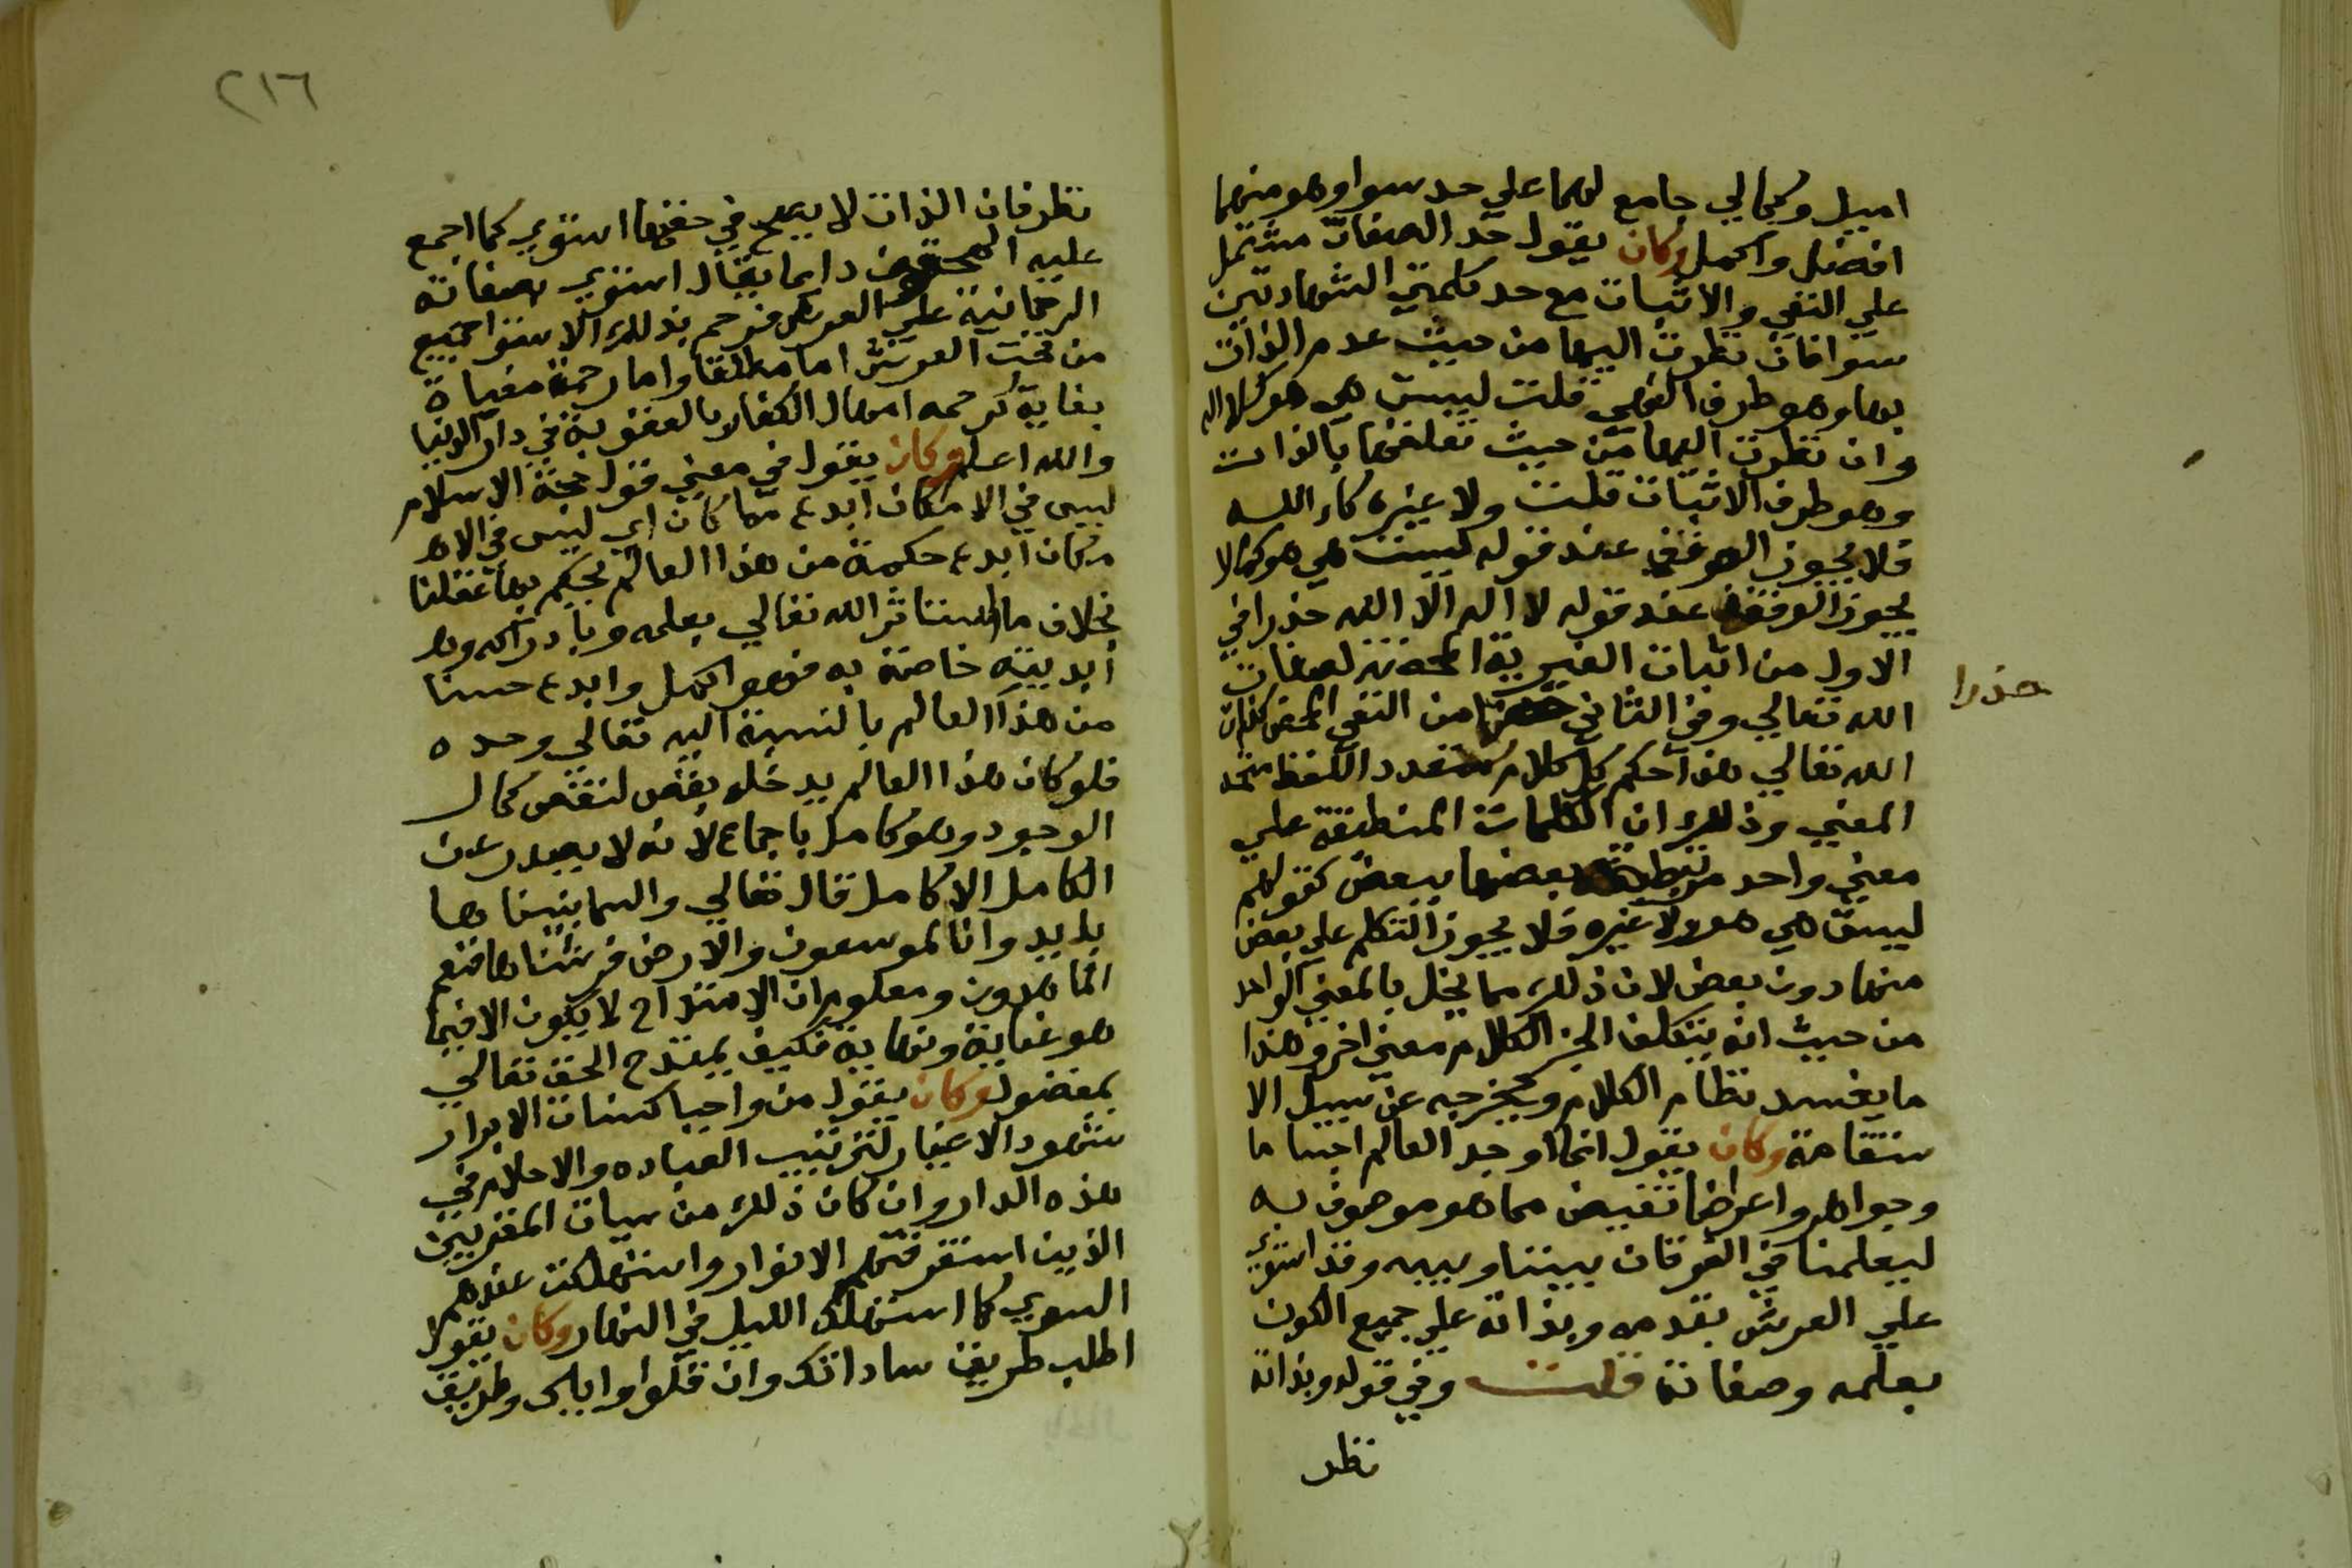 اميل وكمالي جامع لهما علي حد سوا وهو منهما
افضل واكمل وكان يقول حد الصفات مشتمل
علي النفي والاثبات مع حد كلمتي الشهادتين
سوا فان نظرت اليها من حيث عدم الذات
بها وهو طرف النفي قلت ليست هي هو كلا اله
وان نظرت اليها من حيث تعلقها بالذات
وهو طرف الاثبات قلت ولا غيره كالا الله
فلا يجوز الوقف عند قوله ليست هي هو كما لا
يجوز الوقف عند قوله لا اله الا الله حذرا في
الاول من اثبات الغيرية المحضة لصفات
الله تعالي وفي الثاني من النفي المحض لذات
حذرا
الله تعالي هذا حكم كل كلام متعدد اللفظ متحد
المعني وذلك ان الكلمات المنطبقة علي
معني واحد مرتبطة بعضها ببعض كقولهم
ليست هي هو ولا غيره فلا يجوز التكلم علي بعض
منها دون بعض لان ذلك مما يخل بالمعني الواحد
من حيث انه يتكلف الجز الكلام معني اخر وهذا
ما يفسد نظام الكلام ويخرجه عن سبيل الا
ستقامة وكان يقول انما اوجد العالم اجساما
وجواهر واعراضا نقيض مما هو موصوف به
ليعلمنا في الفرقان بيننا وبينه وقد استوي
علي العرش بقدمه وبذاته علي جميع الكون
بعلمه وصفاته قلت وفي قوله وبذاته
نظر
٢١٦
نظر فان الذات لا يصح في حقها استوي كما اجمع
عليه المحققون دايما يقال استوي بصفاته
الرحمانية علي العرش فرحم بذلك الاستوا جميع
من تحت العرش اما مطلقا واما رحمة مغياة
بغاية كرحمه امهال الكفار بالعقوبة في دار الدنيا
والله اعلم وكان يقول في معني قول حجة الاسلام
ليس في الامكان ابدع مما كان اي ليس في الا
مكان ابدع حكمة من هذا العالم بحكم بها عقلنا
بخلاف ما استاثر الله تعالي بعلمه وبادراكه وا
ابديته خاصة به فهو اكمل وابدع حسنا
من هذا العالم بالنسبة اليه تعالي وحده
فلو كان هذا العالم يدخله نقص لنقص كمال
الوجود وهو كامل باجماع لانه لا يصدر عن
الكامل الا كامل قال تعالي والسما بنيناها
بايد وانا لموسعون والارض فرشناها فنعم
الماهدون ومعلوم ان الامتداح لا يكون الا فيما
هو غاية ونهاية فكيف يمتدح الحق تعالي
بمفضول وكان يقول من واجبا حسنات الابرار
شهود الاغيار لترتيب العباده والاحلام في
هذه الدار وان كان ذلك من سيات المقربين
الذين استغرقتهم الانوار واستهلكت عندهم
السوي كما استهلك الليل في النهار وكان يقول
اطلب طريق ساداتك وان قلوا واياك وطريق